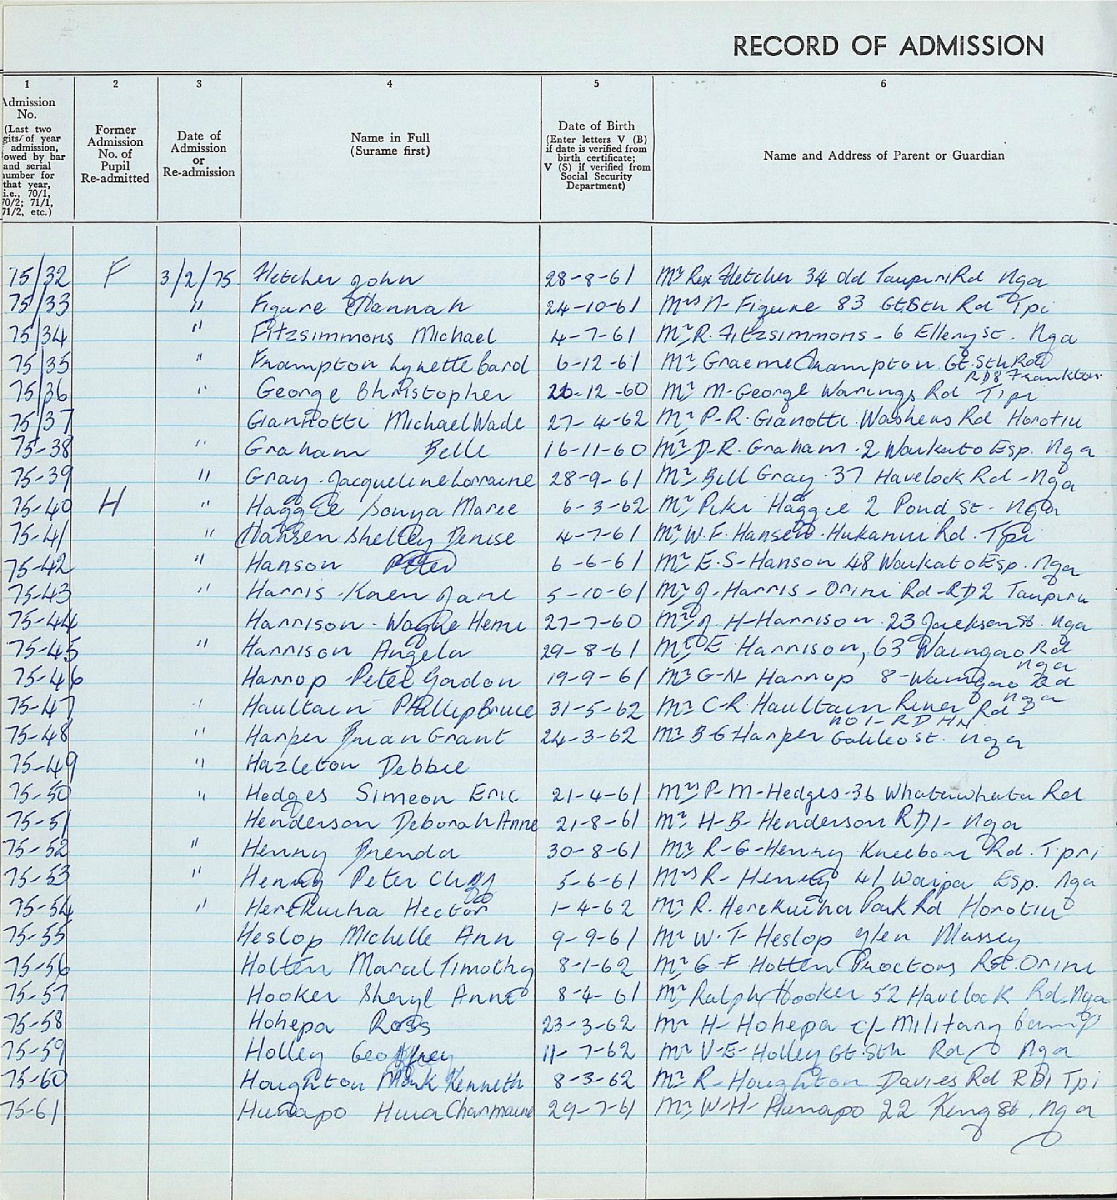 RECORD OF ADMISSION
1 2 3 4 5 6
Admission No. (Last two gits of year admission, owed by bar and serial number for that year, i.e., 70/1, 70/2; 71/1, 71/2, etc.)
Former Admission No. of Pupil Re-admitted
Date of Admission or Re-admission
Name in Full (Surame first)
Date of Birth (Enter letters V (B) if date is verified from birth certificate; V (S) if verified from Social Security Department)
Name and Address of Parent or Guardian
75/32 F 3/2/75 Fletcher John 28-8-61 Mr Rex Fletcher 34 Old Taupiri Rd Nga
75/33 " Figure Hannah 24-10-61 Mrs N- Figure 83 Gt Sth Rd Tpi
75/34 " Fitzsimmons Michael 4-7-61 Mr R. Fitzsimmons - 6 Ellery St. Nga
75/35 " Frampton Lynette Carol 6-12-61 Mr Graeme Frampton Gt. Sth Rd
RD8 Frankton
75/36 " George Christopher 26-12-60 Mr M- George Warings Rd Tpi
75/37 Gianotti Michael Wade 27-4-62 Mr P-R. Gianotti. Washers Rd Horotiu
75-38 " Graham Belle 16-11-60 Mr D-R. Graham. 2 Waikato Esp. Nga
75-39 " Gray Jacqueline Lorraine 28-9-61 Mr Bill Gray. 37 Havelock Rd - Nga
75-40 H " Haggie Sonya Maree 6-3-62 Mr Piki Haggie 2 Pond St - Nga
75-41 " Hansen Shelley Denise 4-7-61 Mr W. E. Hansen. Hukanui Rd. Tpi
75-42 " Hanson Peter 6-6-61 Mr E. S- Hanson 48 Waikato Esp. Nga
75-43 " Harris - Karen Jane 5-10-61 Mr J- Harris - Orini Rd-RD2 Taupiri
75-44 Harrison - Wayne Hemi 27-7-60 Mr J. H-Harrison. 23 Jackson St. Nga
75-45 " Harrison Angela 29-8-61 Mr E Harrison, 63 Waingaro Rd
Nga
75-46 Harrop Peter Gordon 19-9-61 Mr G-N Harrop 8- Waingaro Rd
Nga
75-47 " Haultain Phillip Bruce 31-5-62 Mr C-R Haultain River Rd
No 1 - RD HN
75-48 " Harper Brian Grant 24-3-62 Mr B G Harper Galileo St. Nga
75-49 " Hazleton Debbie
75-50 " Hedges Simeon Eric 21-4-61 Mrs P-M-Hedges-36 Whatawhata Rd
75-51 Henderson Deborah Anne 21-8-61 Mr H-B- Henderson RD1- Nga
75-52 " Henry Brenda 30-8-61 Mr R-G-Henry Kneebone Rd. Tpi
75-53 " Henry Peter 5-6-61 Mrs R- Henry 41 Waipa Esp. Nga
75-54 " Herekuiha Hector 1-4-62 Mr R. Herekuiha Park Rd Horotiu
75-55 Heslop Michelle Ann 9-9-61 Mr W. T- Heslop Glen Massey
75-56 Holten Marcel Timothy 8-1-62 Mr G-F Hotten Proctors Rd. Orini
75-57 Hooker Sheryl Anne 8-4-61 Mr Ralph Hooker 52 Havelock Rd. Nga
75-58 Hohepa Ross 23-3-62 Mr H- Hohepa c/- Military Camp
75-59 Holley Geoffrey 11-7-62 Mr V-E-Holley Gt. Sth Rd Nga
75-60 Houghton Mark Kenneth 8-3-62 Mr R- Houghton Davies Rd RD1 Tpi
75-61 Hunapo Huia Charmaine 29-7-61 Mr W-H- Hunapo 22 King St. Nga